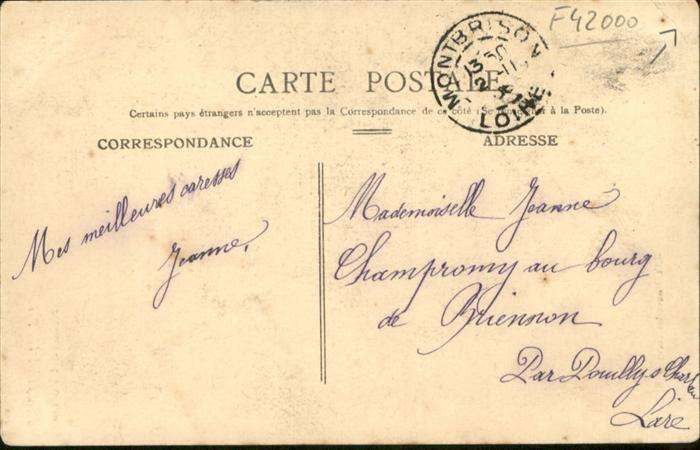 F42000
MONTBRISON
LOIRE
CARTE POSTALE
Certains pays étrangers n'acceptent pas la Correspondance de ce côté (Se renseigner à la Poste).
CORRESPONDANCE
ADRESSE
Mes meilleures caresses
Jeanne,
Mademoiselle Jeanne
Champromy au bourg
de Briennon
Par Pouilly s Charlieu
Loire